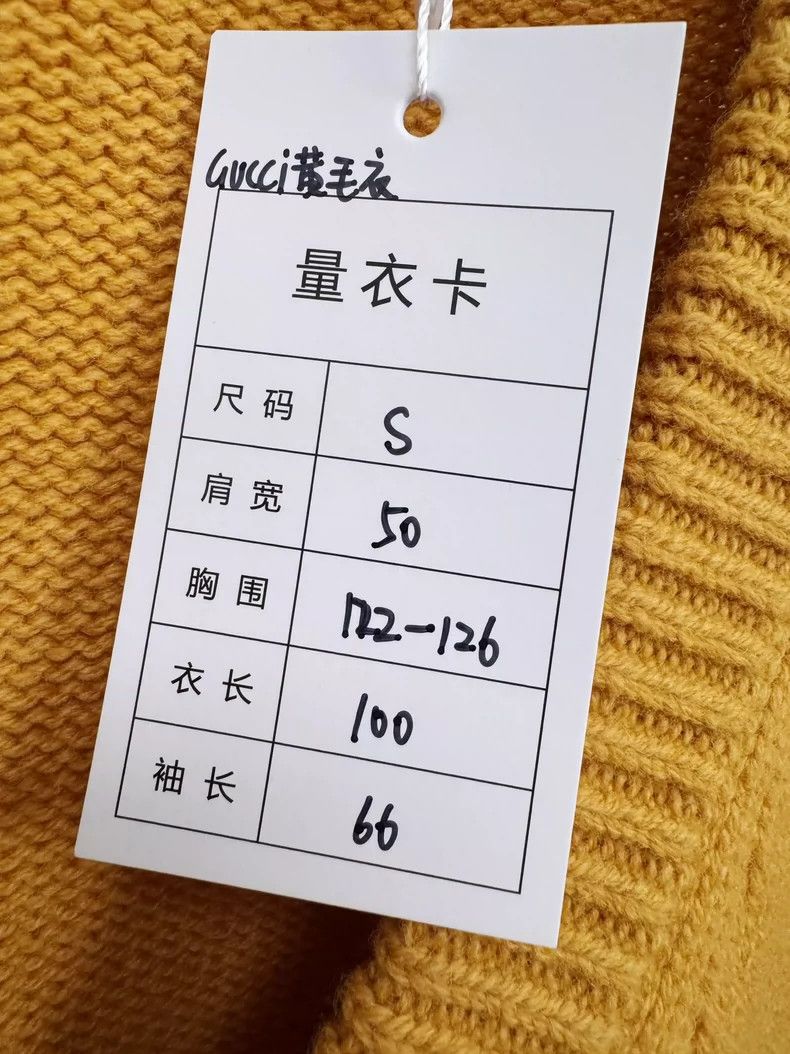 Gucci黄毛衣
量衣卡
尺码 S
肩宽 50
胸围 122-126
衣长 100
袖长 66